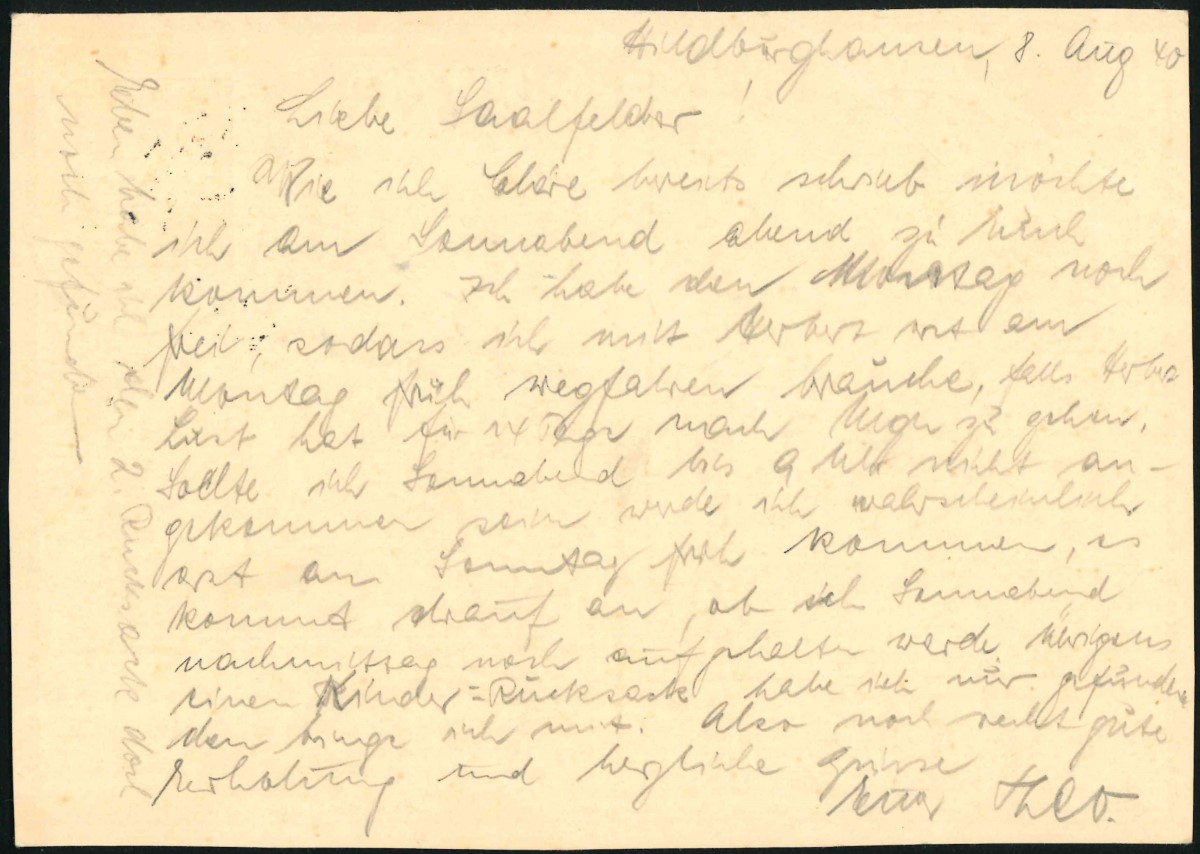 Hildburghausen, 8. Aug 40
Liebe Saalfelder!
Wie ich Cläre bereits schrieb möchte
ich am Sonnabend abend zu Euch
kommen. Ich habe den Montag noch
frei, sodass ich mit Herbert erst am
Montag früh wegfahren brauche, falls Herbert
Lust hat für 14 Tage nach zu gehen.
Sollte ich Sonnabend bis 9 Uhr nicht an-
gekommen sein werde ich wahrscheinlich
erst am Sonntag früh kommen, es
kommt drauf an, ob ich Sonnabend
nachmittag noch aufgehalten werde. Übrigens
einen Kinder=Rucksack habe ich nur gefunden
den bringe ich mit. Also noch recht gute
Erholung und herzliche Grüsse
Euer Theo.
Eben habe ich den 2. Rucksack doch
noch gefunden